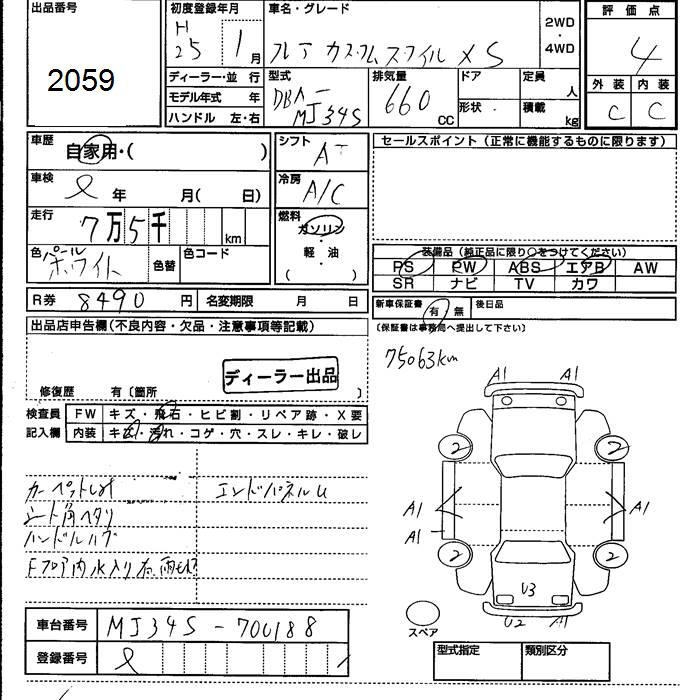 出品番号
2059
初度登録年月
H
25 1月
車名・グレード
フレア カスタムスタイル XS
2WD
・
4WD
評価点
4
外装 内装
C C
ディーラー・並行
モデル年式 年
ハンドル 左・右
型式
DBA-
MJ34S
排気量
660 CC
ドア
形状
定員
人
積載
kg
車歴
自家用・( )
車検
年 月( 日)
走行
7万5千 km
色 パール
ホワイト
色替
色コード
R券 8490 円
名変期限 月 日
シフト
AT
冷房
A/C
燃料
ガソリン
・
軽油
( )
セールスポイント(正常に機能するものに限ります)
装備品(純正品に限り○をつけてください)
PS PW ABS エアB AW
SR ナビ TV カワ
新車保証書 有・無 後日品
(保証書は事務局へ提出して下さい)
出品店申告欄(不良内容・欠品・注意事項等記載)
ディーラー出品
修復歴 有〔箇所 〕
検査員
記入欄
FW キズ・飛石・ヒビ割・リペア跡・X要
内装 キズ・汚れ・コゲ・穴・スレ・キレ・破レ
75063km
A1 A1
2 2
A1 A1
A1
2 2
U3
U2 A1
スペア
カーペット
エンドパネルU
シート角ヘタリ
ハンドルハゲ
Fフロア内水入り
車台番号 MJ34S-700188
登録番号
型式指定 類別区分